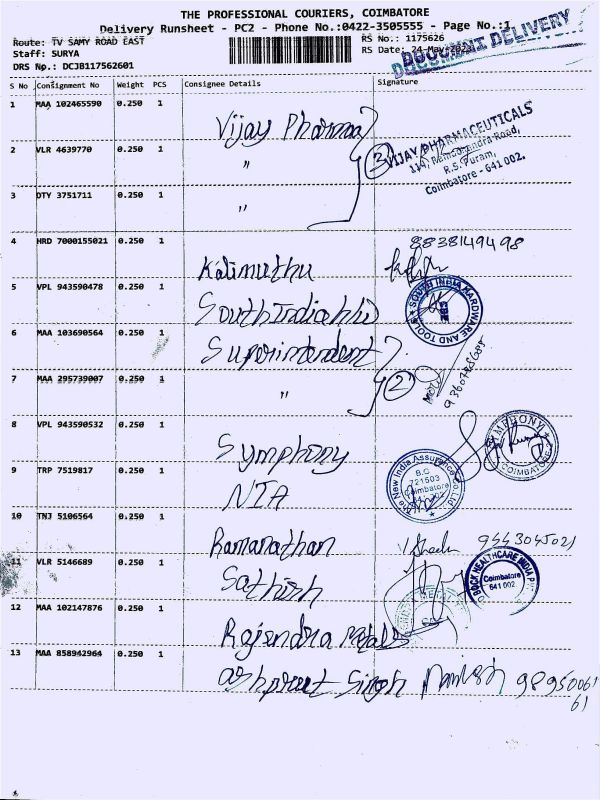 THE PROFESSIONAL COURIERS, COIMBATORE
Delivery Runsheet - PC2 - Phone No.:0422-3505555 - Page No.:1
Route: TV SAMY ROAD EAST
RS No.: 1175626
Staff: SURYA
RS Date: 24-May-2023
DRS No.: DCJB117562601
DOCUMENT DELIVERY
S No Consignment No Weight PCS Consignee Details Signature
1 MAA 102465590 0.250 1 Vijay Pharma
VIJAY PHARMACEUTICALS
114, Ramachandra Road,
R.S. Puram,
Coimbatore - 641 002.
2 VLR 4639770 0.250 1 "
3
3 DTY 3751711 0.250 1 "
4 HRD 7000155021 0.250 1 Kalimuthu
8838149498
5 VPL 943590478 0.250 1 South India hw
SOUTH INDIA HARDWARE AND TOOLS
CBE
6 MAA 103690564 0.250 1 Superintendent
7 MAA 295739007 0.250 1 "
2
8 VPL 943590532 0.250 1 Symphony
SYMPHONY
COIMBATORE
9 TRP 7519817 0.250 1 NIA
The New India Assurance Co. Ltd.
B.O.
721603
Coimbatore
10 TNJ 5106564 0.250 1 Ramanathan
11 VLR 5146689 0.250 1 Sathish
BOCK HEALTHCARE INDIA
Coimbatore
641 002.
12 MAA 102147876 0.250 1 Rajendra Metals
13 MAA 858942964 0.250 1 ashpreet Singh
98950061
61